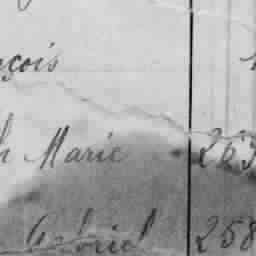 nçois
h Marie 263
Gabriel 258